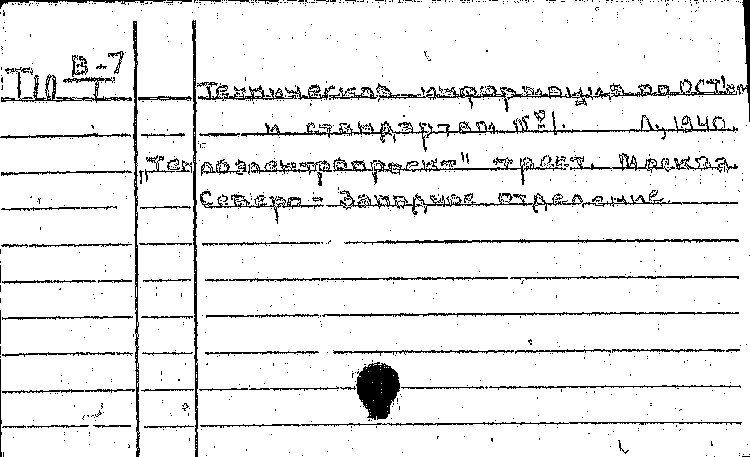 Т10 В-7/1 Техническая информация по ОСТ'ам
и стандартам №1. Л., 1940.
"Теплоэлектропроект" трест. Москва.
Северо-Западное отделение